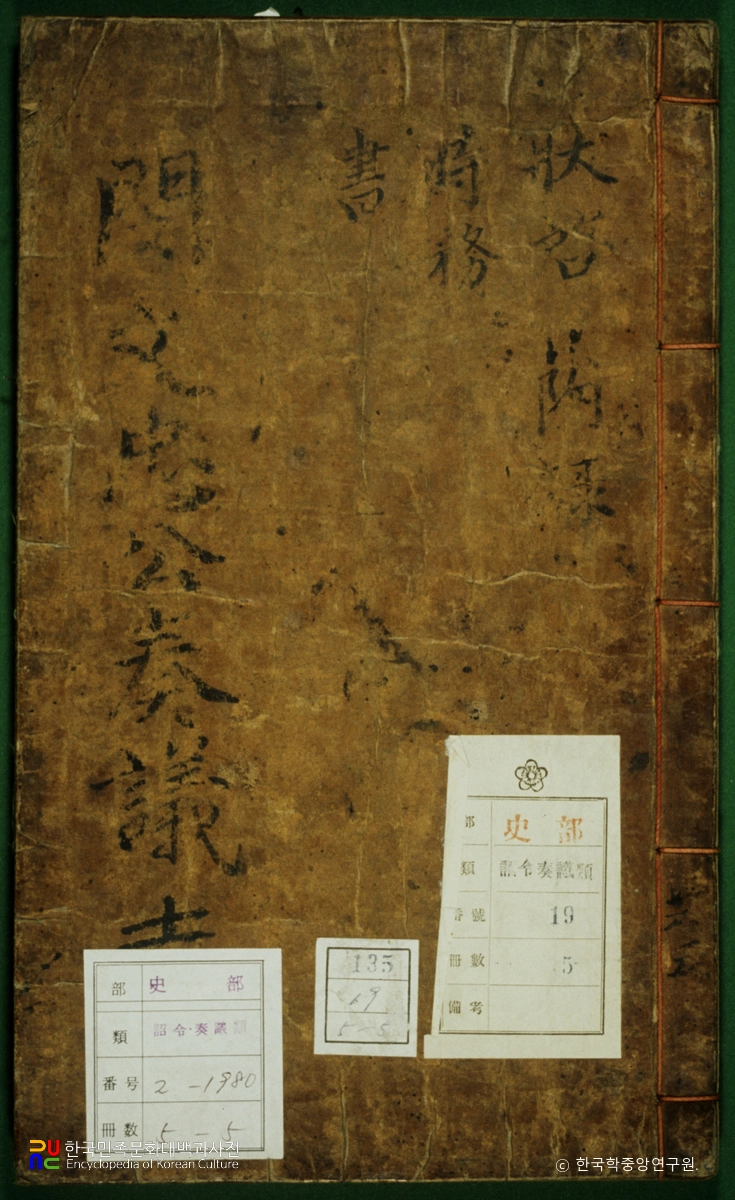 狀啓
時務
書
閔文忠公奏議
部 史部
類 詔令奏議類
番號 19
冊數 5
備考
135
19
5-5
部 史部
類 詔令·奏議類
番号 2-1980
冊数 5-5
한국민족문화대백과사전
Encyclopedia of Korean Culture
© 한국학중앙연구원